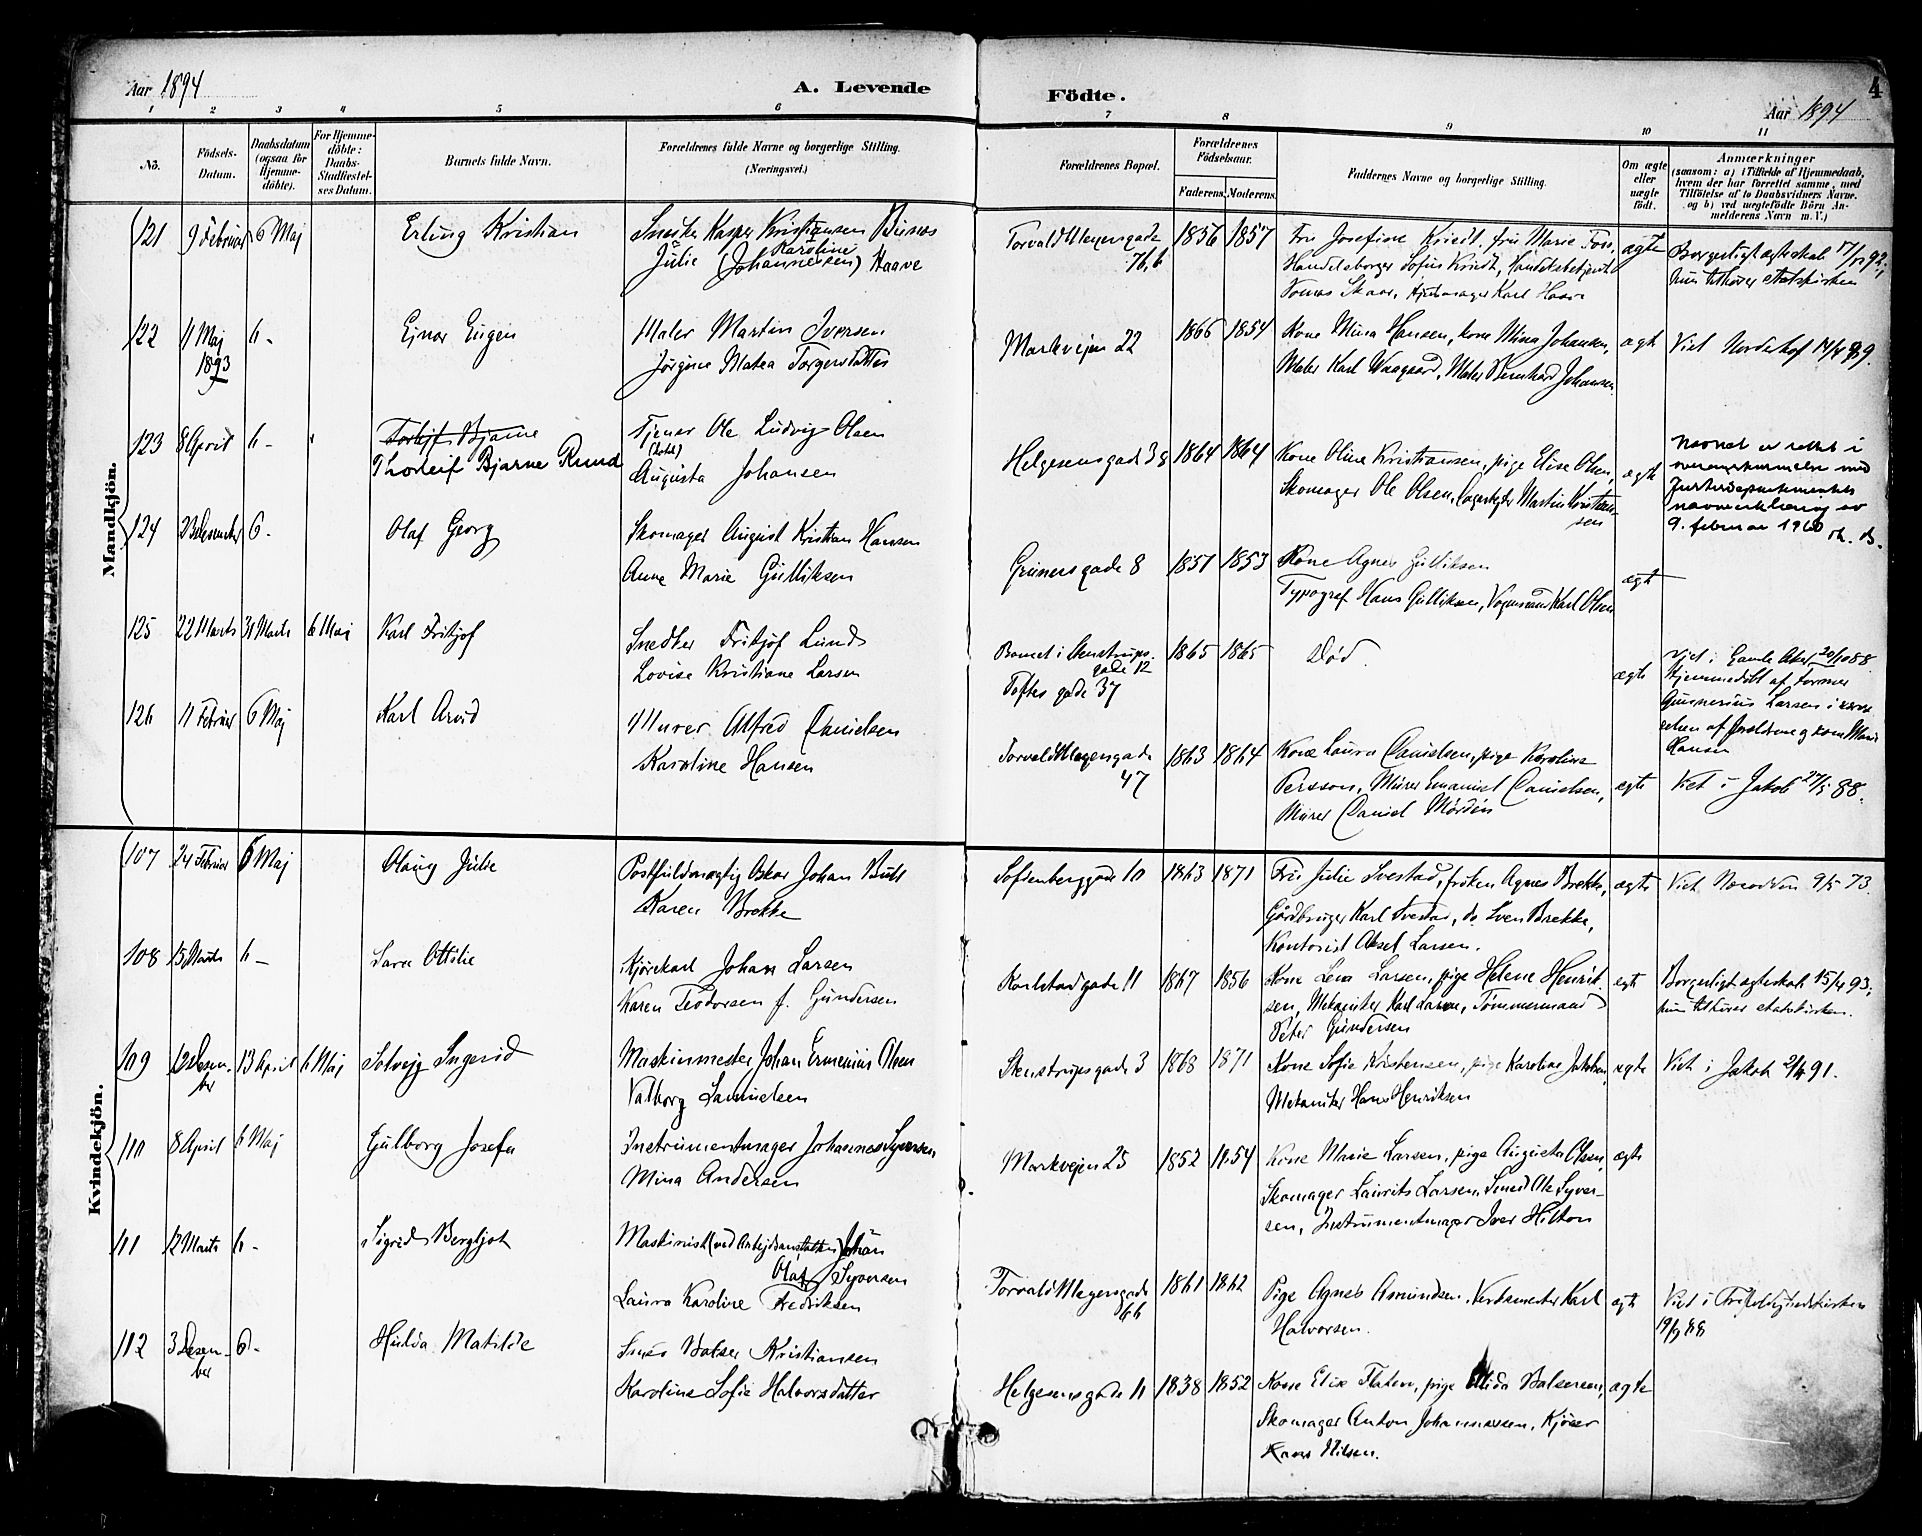 Aar 1894
A. Levende
Födte.
Aar 1894
4
1 2 3 4 5 6 7 8 9 10 11
No.
Födsels-
Datum.
Daabsdatum
(ogsaa for
Hjemme-
döbte).
For Hjemme-
döbte:
Daabs-
Stadfæstel-
ses Datum.
Barnets fulde Navn.
Forældrenes fulde Navne og borgerlige Stilling.
(Næringsvei.)
Forældrenes Bopæl.
Forældrenes
Födselsaar.
Faderens. Moderens.
Faddernes Navne og borgerlige Stilling.
Om ægte
eller
uægte
födt.
Anmærkninger
(saasom: a) i Tilfælde af Hjemmedaab,
hvem der har forrettet samme, med
Tilföielse af to Daabsvidners Navne,
og b) ved uægtefödte Börn An-
melderens Navn m. V.)
Mandkjön.
121 9 Februar 6 Maj Erling Kristian
Kristiansen
Karoline
Julie (Johannesen) Haave
Torvald Meyersgade
76,b
1856 1857
ægte
Borgerligt ægteskab
hun tilhører statskirken
122 11 Maj
1893
6 - Ejnar Eugen
Maler Martin Iversen
Jörgine Matea Torgersdatter
Markvejen 22
1866 1854
Kone Mina Hansen, kone Mina Johansen,
Maler Karl Waagaard, Maler Bernhard Johansen
ægte
Viet
123 8 April 6 -
Bjarne
Thorleif Bjarne Rund
Tjener Ole Ludvig Olsen
(hotel)
Augusta Johansen
Helgesensgade 38
1864 1864
Kone Oline Kristiansen, pige Elise Olsen,
Skomager Ole Olsen, Martin Kristian-
sen
ægte
Navnet er rettet i
overensstemmelse med
Justisdepartementets
navneerklæring av
9. februar 1960
124 23 Desember 6 - Olaf Georg
Skomager August Kristian Hansen
Anne Marie Gulliksen
Grunersgade 8
1851 1853
Kone Agnes Gulliksen
Typograf Hans Gulliksen, Vognmand Karl Olsen
ægte
125 22 Marts 31 Marts 6 Maj Karl Fritjof
Snedker Fritjof Lund
Lovise Kristiane Larsen
Stenstrups-
gade 12
Toftes gade 37
1865 1865
Död.
ægte
Viet i Gamle Aker 20/10 88
Hjemmedöbt af
Gunnerius Larsen i
Hansen
126 11 Februar 6 Maj Karl Arvid
Murer Alfred Danielsen
Karoline Hansen
Torvald Meyersgade
47
1863 1864
Kone Laura Danielsen, pige Karoline
Persson, Murer Emanuel Danielsen,
Murer Daniel
ægte
Viet i Jakob 27/5 88.
Kvindekjön.
107 24 Februar 6 Maj Olaug Julie
Postfuldmægtig Oskar Johan
Karen Brekke
Sofienberggade 10
1863 1871
Fru Julie Svestad, fröken Agnes Brekke,
Gårdbruger Karl Svestad, do Sven Brekke,
Kontorist Aksel Larsen.
ægte
Viet
108 15 Marts 6 - Sara Ottilie
Kjörekarl Johan Larsen
Karen Teodorsen f. Gundersen
Karlstadgade 11
1867 1856
Kone Lena Larsen, pige Helene Henrik-
sen, Mekaniker Karl Larsen, Tömmermand
Peter Gundersen
ægte
Borgerligt ægteskab 15/4 93,
hun tilhører statskirken.
109 12 Desem-
ber
13 April 6 Maj Solvejg Ingerid
Maskinmester Johan Ermenius Olsen
Valborg
Stenstrupsgade 3
1868 1871
Kone Sofie Kristensen, pige Karoline Jakobsen,
Mekaniker Hans Henriksen
ægte
Viet i Jakob 2/4 91.
110 8 April 6 Maj Gulborg Josefa
Instrumentmager Johannes Syversen
Mina Andersen
Markvejen 25
1852 1854
Kone Marie Larsen, pige Augusta Olsen,
Skomager Laurits Larsen, Smed Ole Syver-
sen, Instrumentmager Iver Hilton
ægte
111 12 Marts 6 - Sigrid Bergljot
Maskinist (ved Arbejdsanstalten) Johan
Olaf Syversen
Laura Karoline Fredriksen
Torvald Meyersgade
66
1861 1862
Pige Agnes Asmundsen, Verksmester Karl
Halvorsen.
ægte
Viet i Trefoldighedskirken
19/9 88
112 3 Desem-
ber
6 - Hulda Matilde
Smed Balser Kristiansen
Karoline Sofie Halvorsdatter
Helgesensgade 11
1838 1852
Kone Elise Flaten, pige Alida Balsersen,
Skomager Anton Johannessen, Kjörer
Hans Nilsen.
ægte